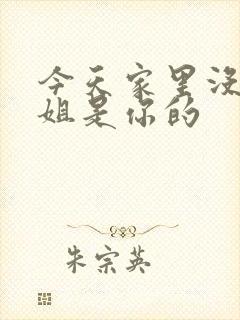 今天家里没
姐是你的
朱宗英